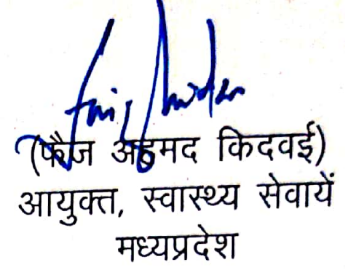 (फैज अहमद किदवई)
आयुक्त, स्वास्थ्य सेवायें
मध्यप्रदेश